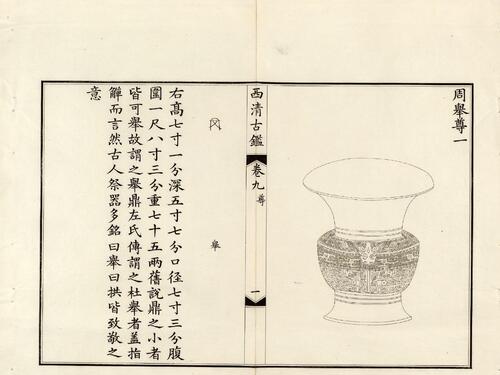 周舉尊一
西清古鑑
卷九
尊
一
舉
右高七寸一分深五寸七分口徑七寸三分腹
圍一尺八寸三分重七十五兩舊說鼎之小者
皆可舉故謂之舉鼎左氏傳謂之杜舉者蓋指
觶而言然古人祭器多銘曰舉曰拱皆致敬之
意